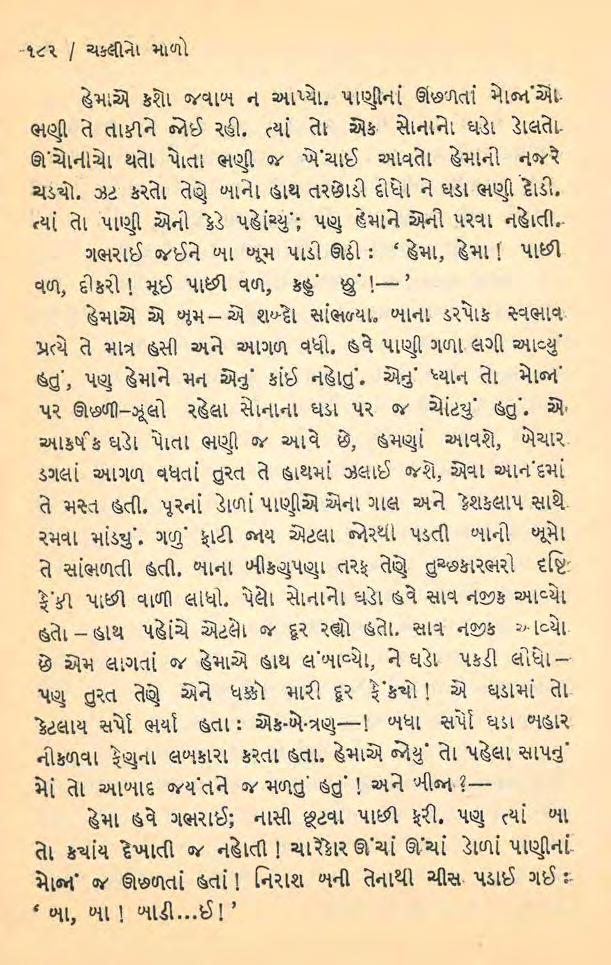 ૧૮૨ / ચકલીનો માળો
હેમાએ કશો જવાબ ન આપ્યો. પાણીનાં ઊછળતાં મોજાંઓ
ભણી તે તાકીને જોઈ રહી. ત્યાં તો એક સોનાનો ઘડો ડોલતો
ઊંચોનીચો થતો પોતા ભણી જ ખેંચાઈ આવતો હેમાની નજરે
ચડયો. ઝટ કરતો તેણે બાનો હાથ તરછોડી દીધો ને ઘડા ભણી દોડી.
ત્યાં તો પાણી એની કેડે પહોંચ્યું; પણ હેમાને એની પરવા નહોતી.
ગભરાઈ જઈને બા બૂમ પાડી ઊઠી : ‘ હેમા, હેમા ! પાછી
વળ, દીકરી ! મૂઈ પાછી વળ, કહું છું !—’
હેમાએ એ બૂમ – એ શબ્દો સાંભળ્યા. બાના ડરપોક સ્વભાવ
પ્રત્યે તે માત્ર હસી અને આગળ વધી. હવે પાણી ગળા લગી આવ્યું
હતું, પણ હેમાને મન એનું કાંઈ નહોતું. એનું ધ્યાન તો મોજાં
પર ઊછળી–ઝૂલી રહેલા સોનાના ઘડા પર જ ચોંટયું હતું. એ
આકર્ષક ઘડો પોતા ભણી જ આવે છે, હમણાં આવશે, બેચાર
ડગલાં આગળ વધતાં તુરત તે હાથમાં ઝલાઈ જશે, એવા આનંદમાં
તે મસ્ત હતી. પૂરનાં ડોળાં પાણીએ એના ગાલ અને કેશકલાપ સાથે
રમવા માંડ્યું. ગળું ફાટી જાય એટલા જોરથી પડતી બાની બૂમો
તે સાંભળતી હતી. બાના બીકણપણા તરફ તેણે તુચ્છકારભરી દૃષ્ટિ
ફેંકી પાછી વાળી લીધો. પેલો સોનાનો ઘડો હવે સાવ નજીક આવ્યો
હતો – હાથ પહોંચે એટલો જ દૂર રહ્યો હતો. સાવ નજીક આવ્યો
છે એમ લાગતાં જ હેમાએ હાથ લંબાવ્યો, ને ઘડો પકડી લીધો –
પણ તુરત તેણે એને ધક્કો મારી દૂર ફેંકયો ! એ ઘડામાં તો
કેટલાય સર્પો ભર્યા હતા : એક-બે-ત્રણ—! બધા સર્પો ઘડા બહાર
નીકળવા ફેણના લબકારા કરતા હતા. હેમાએ જોયું તો પહેલા સાપનું
મોં તો આબાદ જયંતને જ મળતું હતું ! અને બીજા ?—
હેમા હવે ગભરાઈ; નાસી છૂટવા પાછી ફરી. પણ ત્યાં બા
તો કયાંય દેખાતી જ નહોતી ! ચારેકોર ઊંચાં ઊંચાં ડોળાં પાણીનાં
મોજાં જ ઊછળતાં હતાં ! નિરાશ બની તેનાથી ચીસ પડાઈ ગઈ :
‘ બા, બા ! બાડી...ઈ ! ’